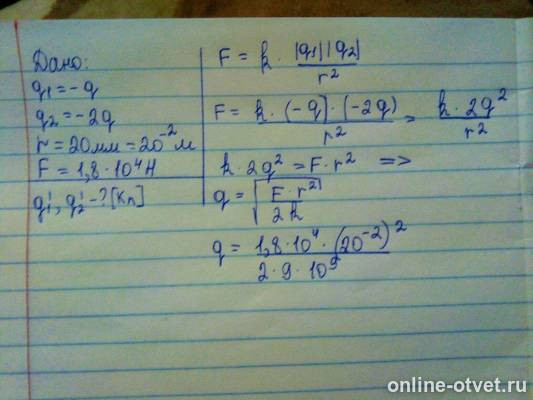 Дано:
q₁ = -q
q₂ = -2q
r = 20мм = 20⁻² м
F = 1,8 · 10⁴ Н
q₁', q₂' - ? [Кл]
F = k · |q₁||q₂| / r²
F = k · (-q) · (-2q) / r² = k · 2q² / r²
k · 2q² = F · r² =>
q = √(F · r² / 2k)
q = 1,8 · 10⁴ · (20⁻²)² / 2 · 9 · 10⁹
online-otvet.ru